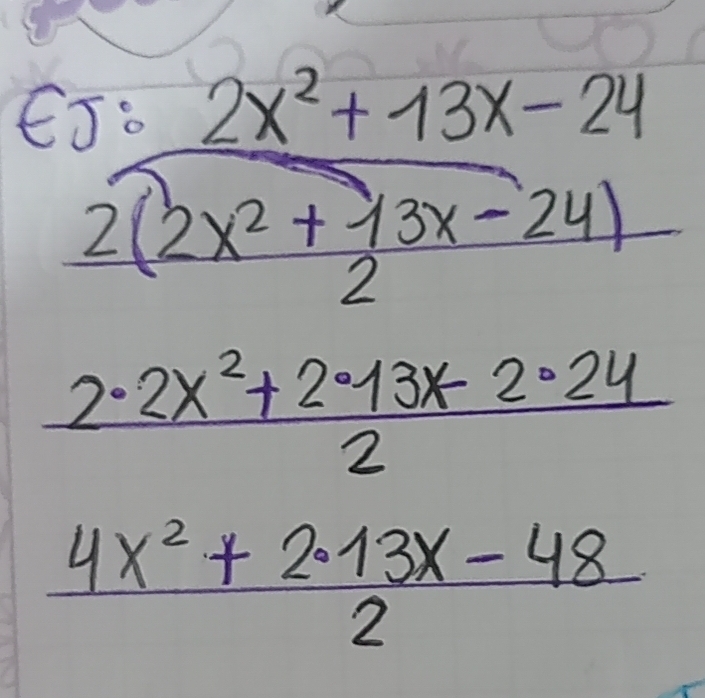 EJ: 2x² + 13x - 24
2(2x² + 13x - 24)
2
2·2x² + 2·13x - 2·24
2
4x² + 2·13x - 48
2